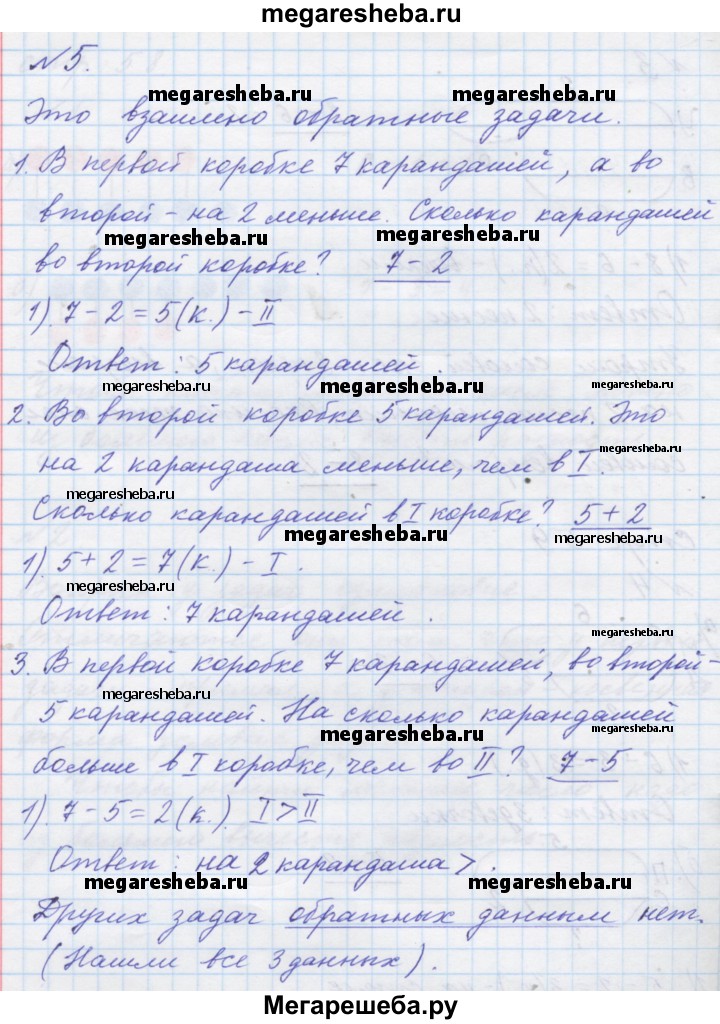 megaresheba.ru
№5.
megaresheba.ru megaresheba.ru
Это взаимено обратные задачи.
1. В первой коробке 7 карандашей, а во
megaresheba.ru
второй - на 2 меньше. Сколько карандашей
megaresheba.ru megaresheba.ru
во второй коробке? 7 - 2
1). 7 - 2 = 5 (к.) - II
megaresheba.ru
Ответ: 5 карандашей.
megaresheba.ru megaresheba.ru
2. Во второй коробке 5 карандашей. Это
megaresheba.ru
на 2 карандаша меньше, чем в I.
megaresheba.ru
Сколько карандашей в I коробке? 5 + 2
megaresheba.ru megaresheba.ru
1). 5 + 2 = 7 (к.) - I.
megaresheba.ru
Ответ: 7 карандашей.
megaresheba.ru megaresheba.ru
3. В первой коробке 7 карандашей, во второй -
megaresheba.ru
5 карандашей. На сколько карандашей
megaresheba.ru megaresheba.ru
больше в I коробке, чем во II? 7 - 5
1). 7 - 5 = 2 (к.) I > II
megaresheba.ru
Ответ: на 2 карандаша >.
megaresheba.ru megaresheba.ru
Других задач обратных данным нет.
(Нашли все 3 данных).
Мегарешеба.ру